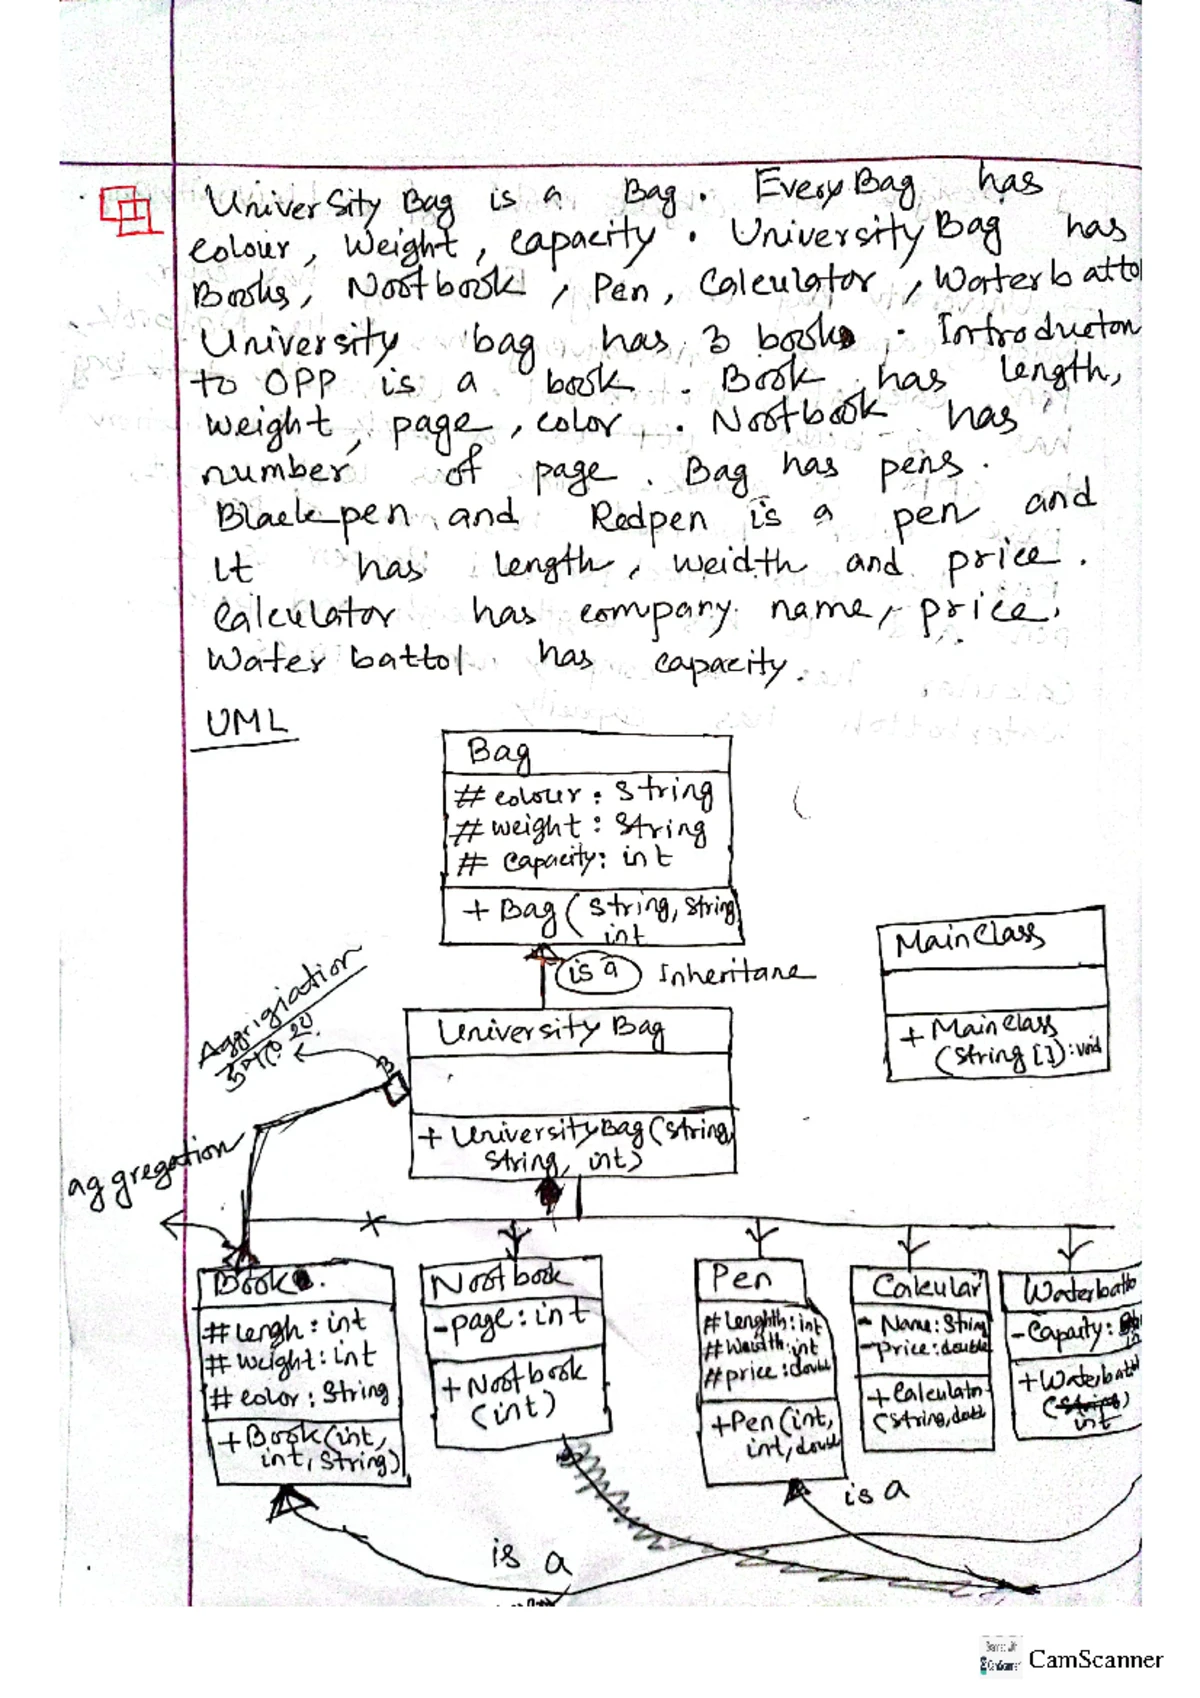 University Bag is a Bag. Every Bag has
colour, Weight, capacity. University Bag has
Books, Nootbook, Pen, Calculator, Waterbatto
University bag has 3 books. Introducton
to OPP is a book. Book has length,
weight, page, color,. Nootbook has
number of page. Bag has pens.
Blackpen and Redpen is a pen and
it has length, weidth and price.
Calculator has company name, price.
Water battol has capacity.
UML
Bag
# colour : String
# weight : String
# capacity: int
+ Bag (string, string
int
is a Inheritane
MainClass
+ MainClass
(string []): void
University Bag
+ UniversityBag (string,
string, int)
Aggrigiatior
aggregation
3
Book
# lengh : int
# weight : int
# color : String
+ Book (int,
int, string)
Nootbook
- page : int
+ Nootbook
(int)
Pen
# Lenghth : int
# Waidth: int
# price : double
+ Pen (int,
int, double
Calkular
- Name: String
- price: double
+ Calculator
(String, doubl
Waterbatto
- Capaity:
+ Waterbatt
int
is a
is a
CamScanner